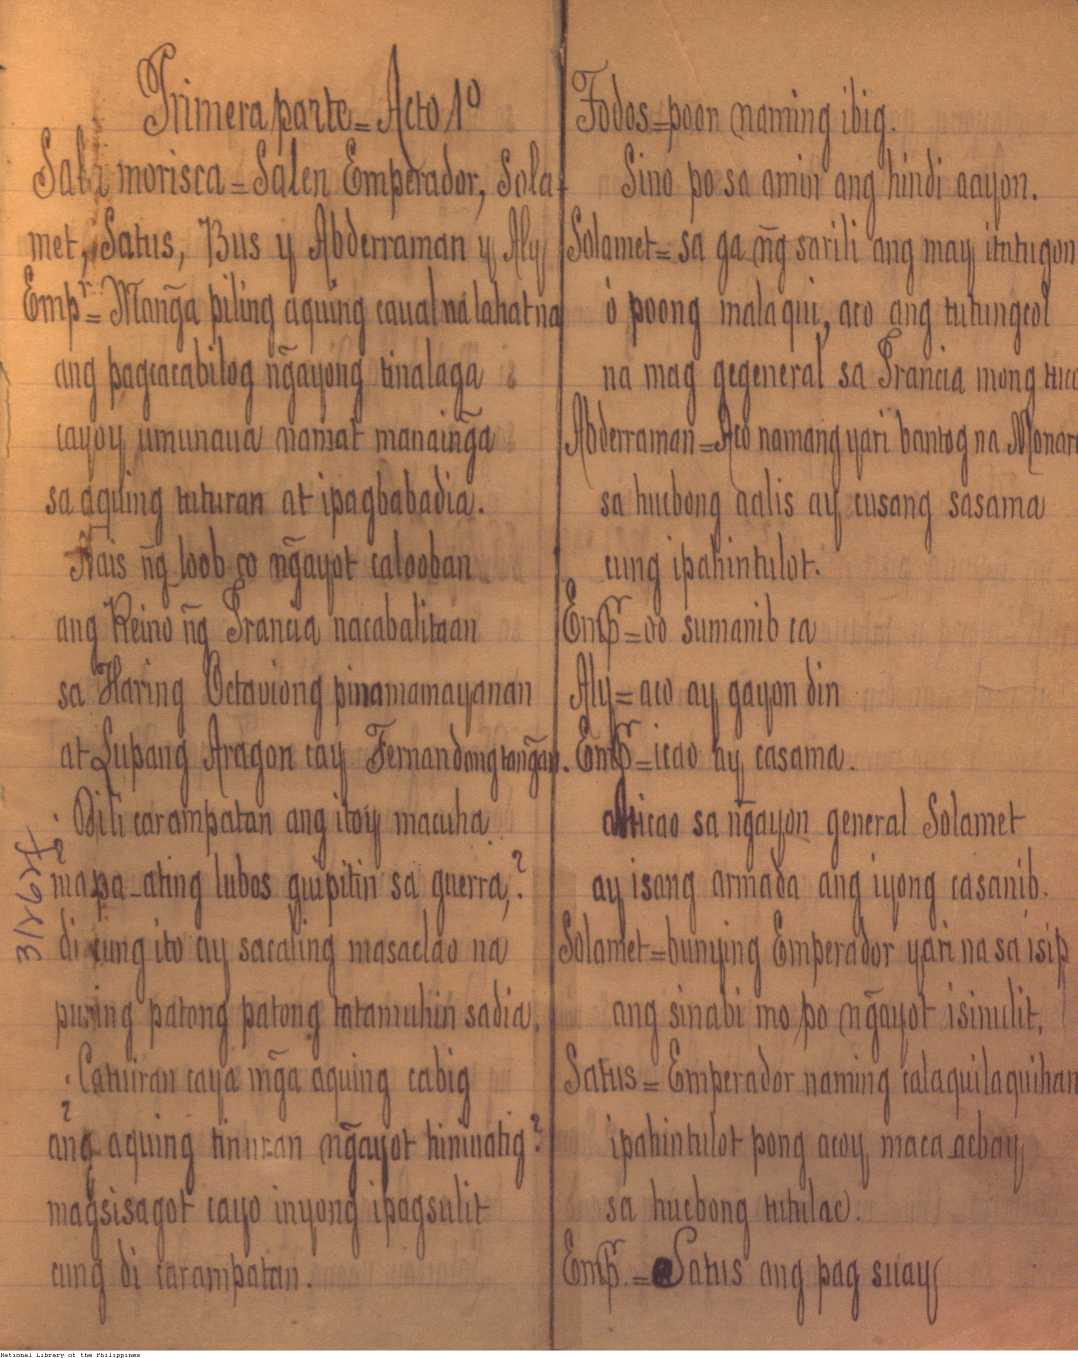 Primera parte = Acto 1º
Sala morisca = Salen Emperador, Sola-
met, Satus, Bus y Abderraman y Aly
Emp.r = Mang̃a piling aquing caual na lahat na
ang pagcacabilog ng̃ayong tinalaga
cayoy umunaua namat manaing̃a
sa aquing tuturan at ipagbabadia.
Nais ñg loob co ng̃ayot calooban
ang Reino ñg Francia nacabalitaan
sa Haring Octaviong pinamamayanan
at Lupang Aragon cay Fernandong tang̃an.
¿Dili carampatan ang itoy macuha
mapa-ating lubos guipitin sa guerra,?
di cung ito ay sacaling masaclao na
puring patong patong tatamuhin sadia,
¿Catuiran caya mg̃a aquing cabig
ang aquing tinuran ng̃ayot tiniuatig?
magsisagot cayo inyong ipagsulit
cung di carampatan.
31262f
Todos = poon naming ibig.
Sino po sa amin ang hindi aayon.
Solamet = sa ga ñg sarili ang may itutugon
ó poong malaqui, aco ang tutungcol
na mag gegeneral sa Francia mong
Abderraman = Aco namang yari bantog na Monar
sa hucbong aalis ay cusang sasama
cung ipahintulot.
Emp.r = oo sumanib ca
Aly = aco ay gayon din
Emp.r = icao ay casama.
icao sa ng̃ayon general Solamet
ay isang armada ang iyong casanib.
Solamet = bunying Emperador yari na sa isip
ang sinabi mo po ng̃ayot isinulit,
Satus = Emperador naming calaquilaquihan
ipahintulot pong acoy maca acbay
sa hucbong tutulac.
Emp.r = Satus ang pag suay
National Library of the Philippines